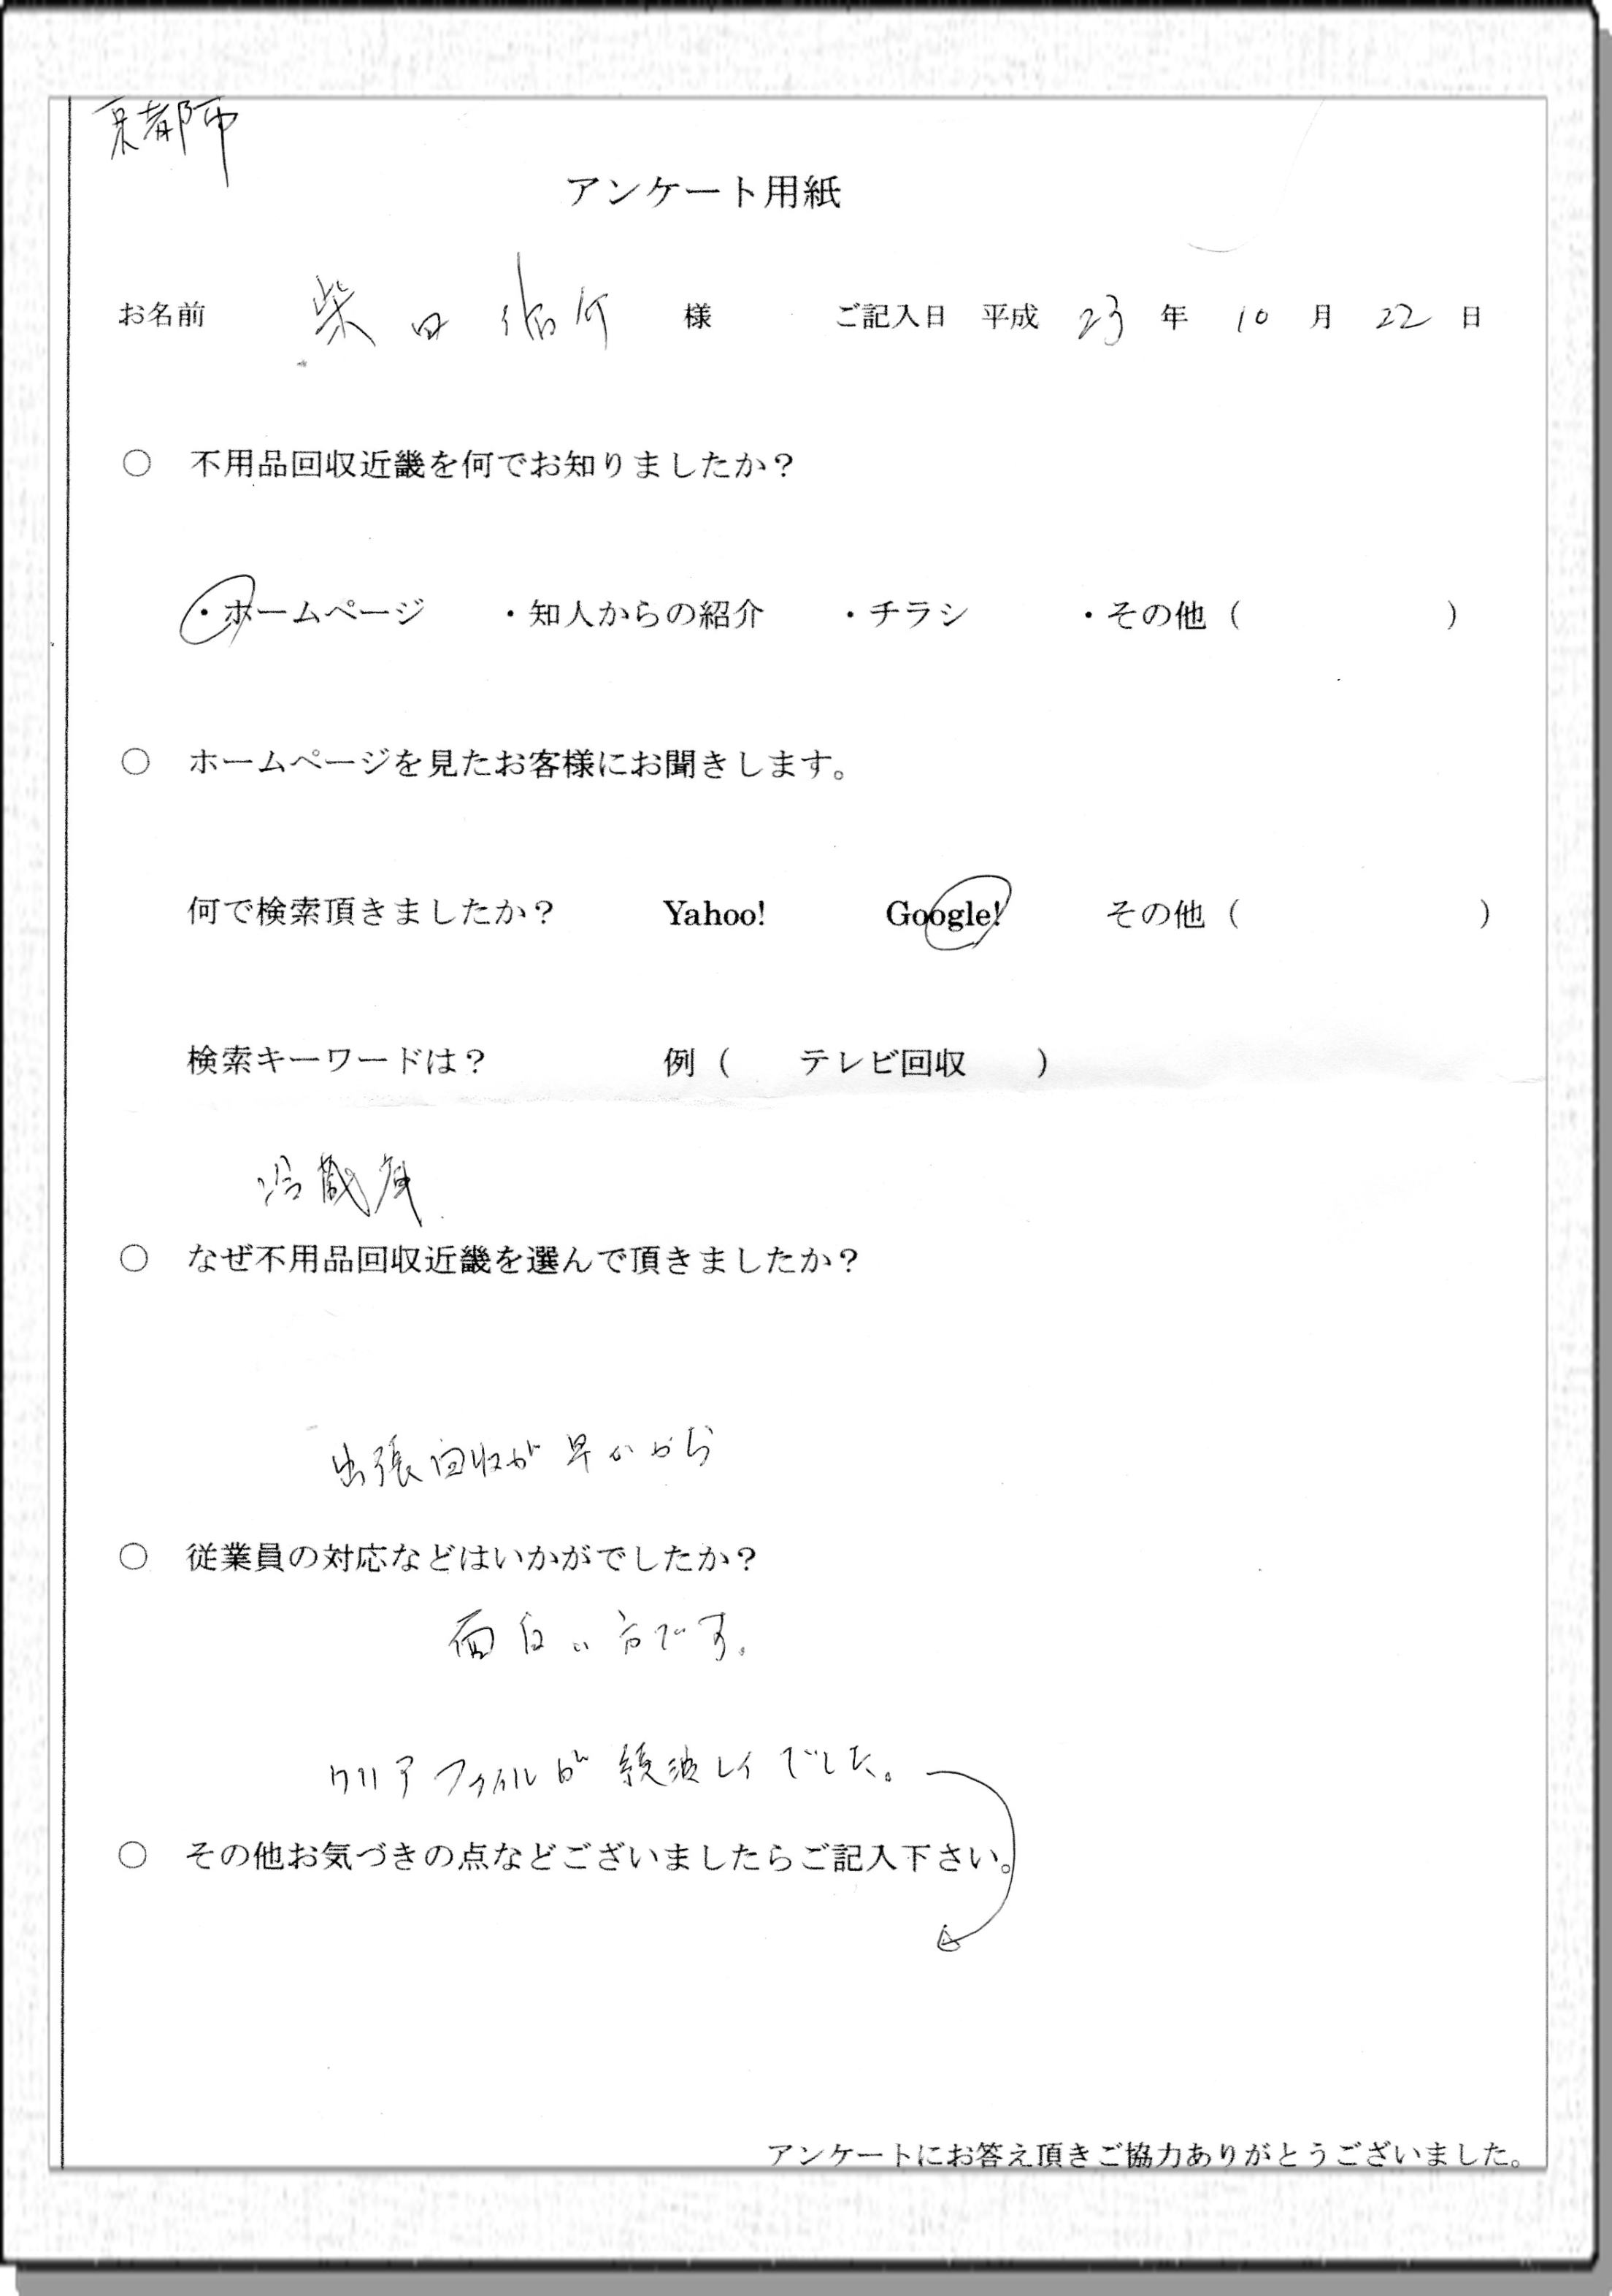 京都市
アンケート用紙
お名前 柴田 様 ご記入日 平成 23 年 10 月 22 日
○ 不用品回収近畿を何でお知りましたか？
・ホームページ ・知人からの紹介 ・チラシ ・その他（ ）
○ ホームページを見たお客様にお聞きします。
何で検索頂きましたか？ Yahoo! Google! その他（ ）
検索キーワードは？ 例（ テレビ回収 ）
冷蔵庫
○ なぜ不用品回収近畿を選んで頂きましたか？
出張回収が早いから
○ 従業員の対応などはいかがでしたか？
面白い方です。
クリアファイルが レイでした。
○ その他お気づきの点などございましたらご記入下さい。
アンケートにお答え頂きご協力ありがとうございました。